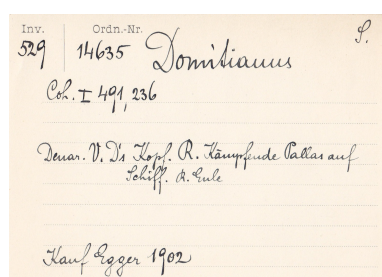 Inv. Ordn.-Nr. S.
529 14635 Domitianus
Coh. I 491, 236
Denar. V. D's Kopf. R. Kämpfende Pallas auf
Schiff. R. Eule
Kauf Egger 1902